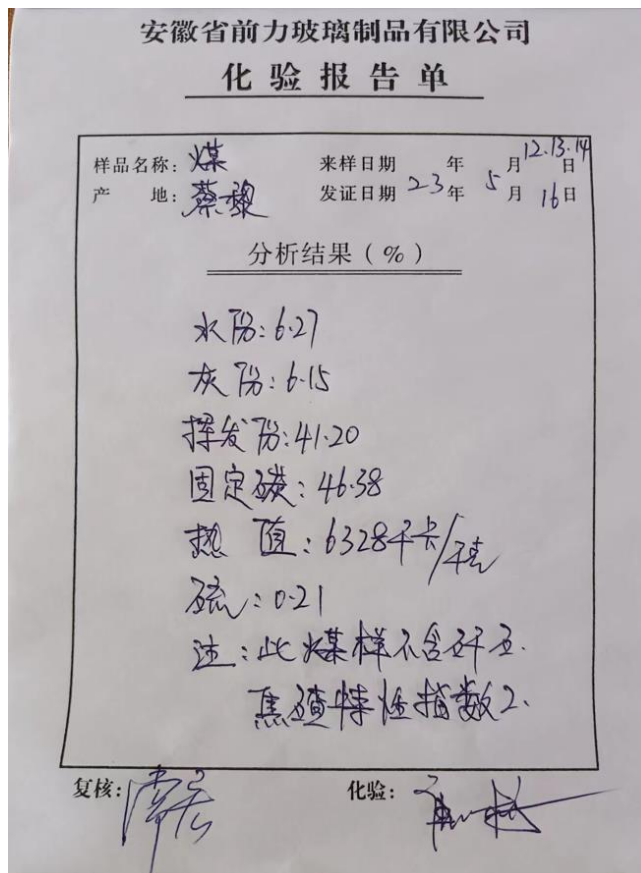 安徽省前力玻璃制品有限公司
化验报告单
样品名称：煤 来样日期 年 月12.13.14日
产 地：蔡 发证日期 23年 5月 16日
分析结果（%）
水份：6.27
灰份：6.15
挥发份：41.20
固定碳：46.38
热 值：6328千卡/千克
硫：0.21
注：此煤样不含矸石.
焦渣特性指数2.
复核：
化验：